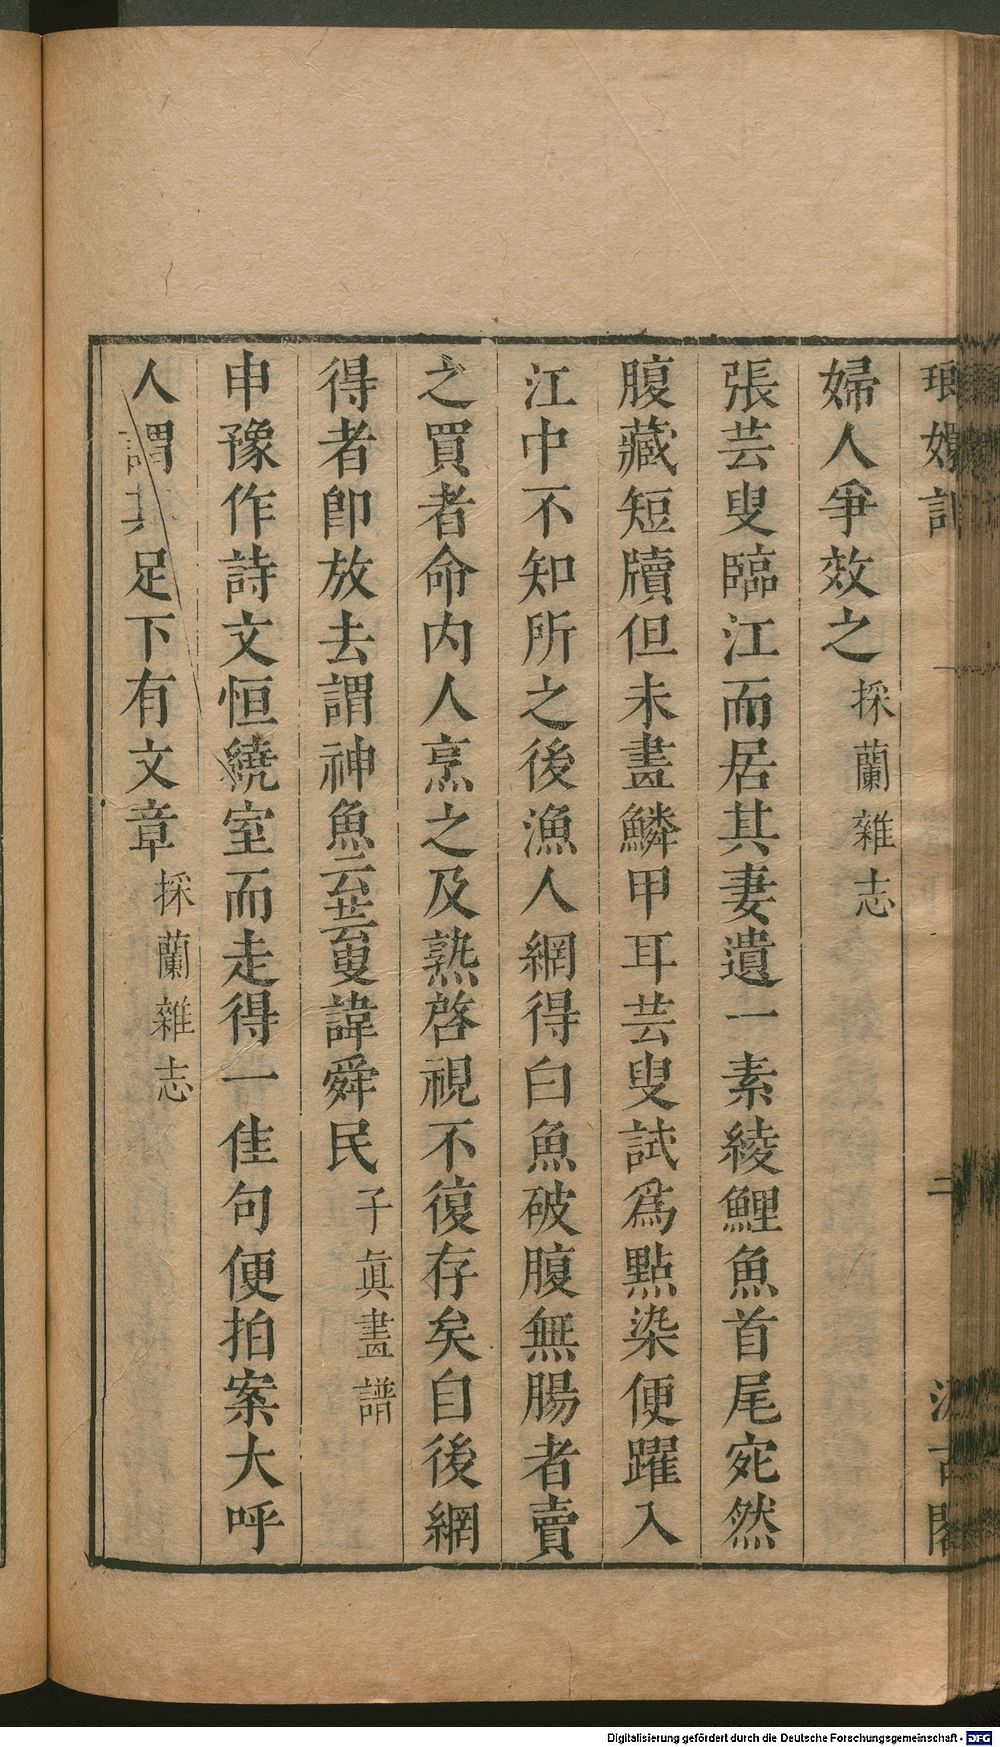 琅嬛記 二 汲古閣
婦人爭效之採蘭雜志
張芸叟臨江而居其妻遺一素綾鯉魚首尾宛然
腹藏短牘但未畫鱗甲耳芸叟試爲點染便躍入
江中不知所之後漁人網得白魚破腹無腸者賣
之買者命内人烹之及熟啓視不復存矣自後網
得者卽放去謂神魚云芸叟諱舜民子眞畫譜
申豫作詩文恒繞室而走得一佳句便拍案大呼
人謂其足下有文章採蘭雜志
Digitalisierung gefördert durch die Deutsche Forschungsgemeinschaft - DFG